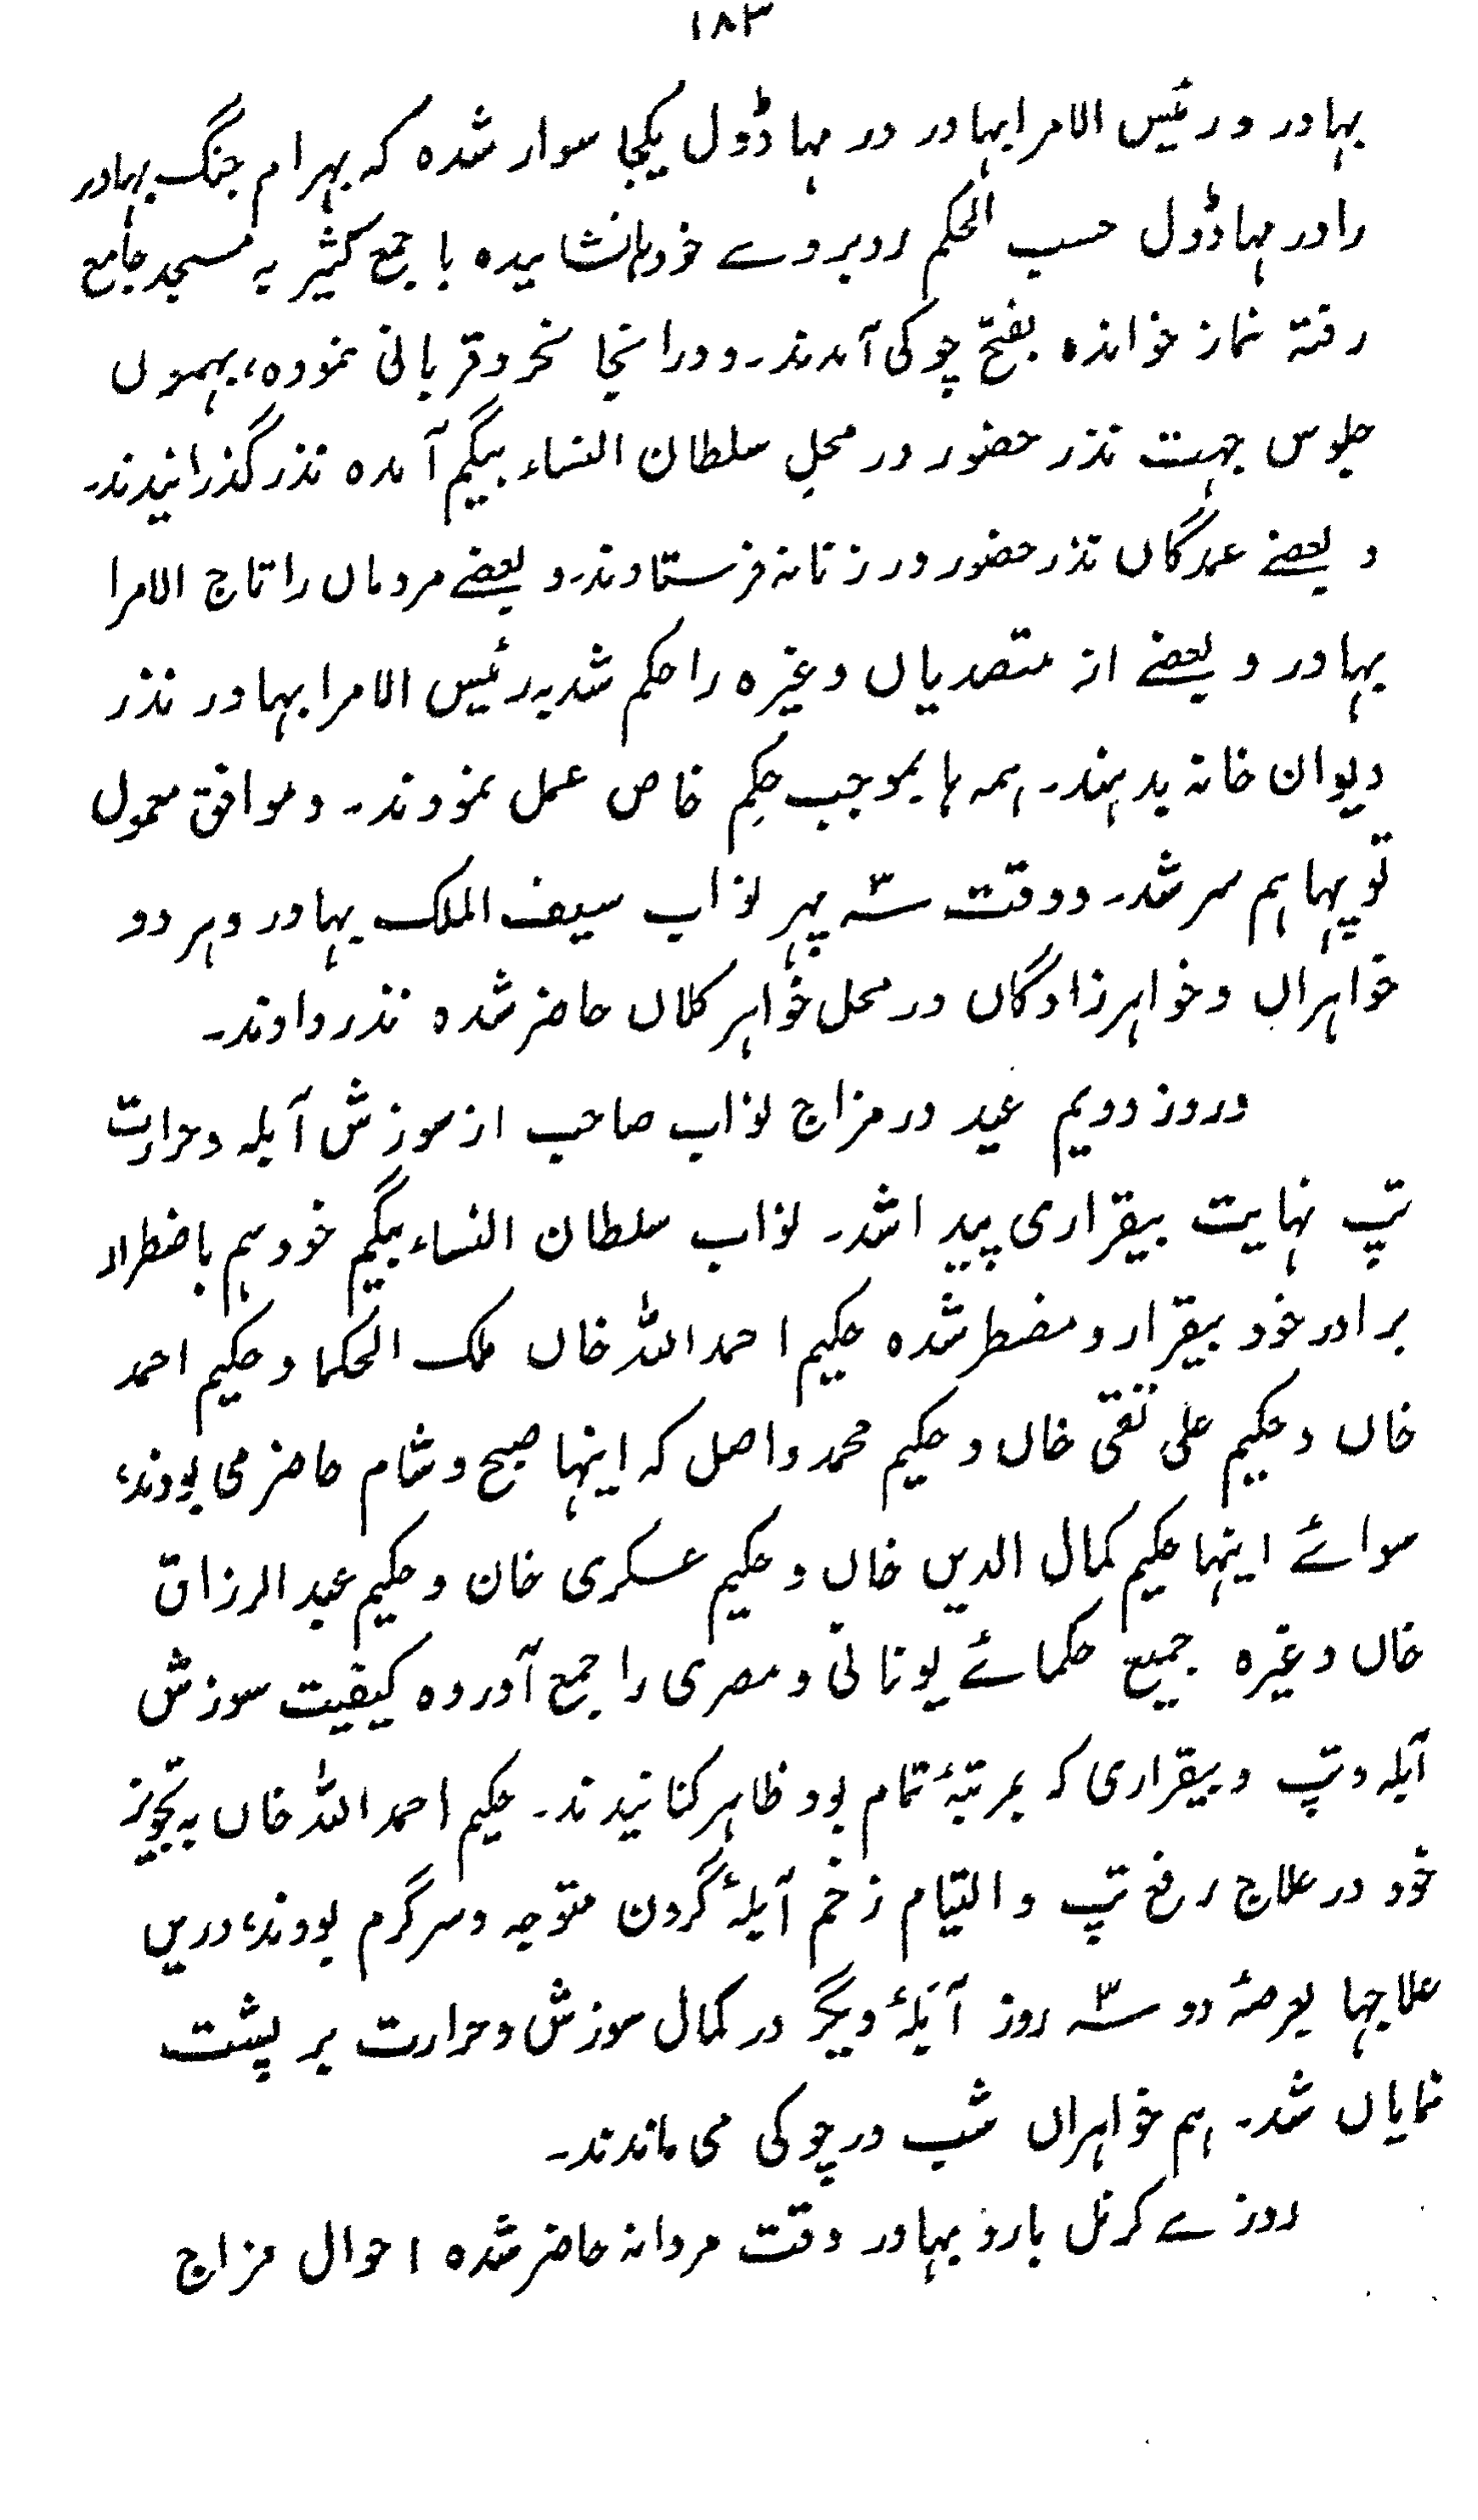 ۱۸۳
بہادر و رئیس الامرا بہادر در مہاڈول یکجا سوار شدہ کہ بہرام جنگ بہادر
را در مہاڈول حسب الحکم روبروے خود نشانیدہ با جمع کثیر بہ مسجد جامع
رفتہ نماز خواندہ بفتح چوکی آمدند۔ و درانجا نحر و قربانی نمودہ، بہموں
جلوس جہت نذر حضور در محلِ سلطان النساء بیگم آمدہ نذر گذرانیدند۔
و بعضے عمدگاں نذر حضور در زنانہ فرستادند۔ و بعضے مردماں را تاج الامرا
بہادر و بعضے از متصدیاں وغیرہ را حکم شد بہ رئیس الامرا بہادر نذر
دیوان خانہ بدہند۔ ہمہ ہا بموجب حکمِ خاص عمل نمودند۔ و موافق معمول
توپہا ہم سر شد۔ و وقت سہ پہر نواب سیف الملک بہادر و ہر دو
خواہراں و خواہرزادگاں در محل خواہر کلاں حاضر شدہ نذر دادند۔
و روز دویم عید در مزاج نواب صاحب از سوزش آبلہ و حرارت
تپ نہایت بیقراری پیدا شد۔ نواب سلطان النساء بیگم خود ہم باضطرار
برادر خود بیقرار و مضطر شدہ حکیم احمد اللہ خاں ملک الحکما و حکیم احمد
خاں و حکیم علی نقی خاں و حکیم محمد واصل کہ اینہا صبح و شام حاضر می بودند،
سوائے اینہا حکیم کمال الدین خاں و حکیم عسکری خان و حکیم عبد الرزاق
خاں وغیرہ جمیع حکمائے یونانی و مصری را جمع آوردہ کیفیت سوزش
آبلہ و تپ و بیقراری کہ بمرتبۂ تمام بود ظاہر کنانیدند۔ حکیم احمد اللہ خاں بہ تجویز
خود در علاج رفع تپ و التیام زخم آبلۂ گردن متوجہ و سرگرم بودند، دریں
علاجہا بعرصۂ دو سہ روز آبلۂ دیگر در کمال سوزش و حرارت بر پشت
نمایاں شد۔ ہم خواہراں شب در چوکی می ماندند۔
روزے کرنل بارو بہادر وقت مردانہ حاضر شدہ احوال مزاج